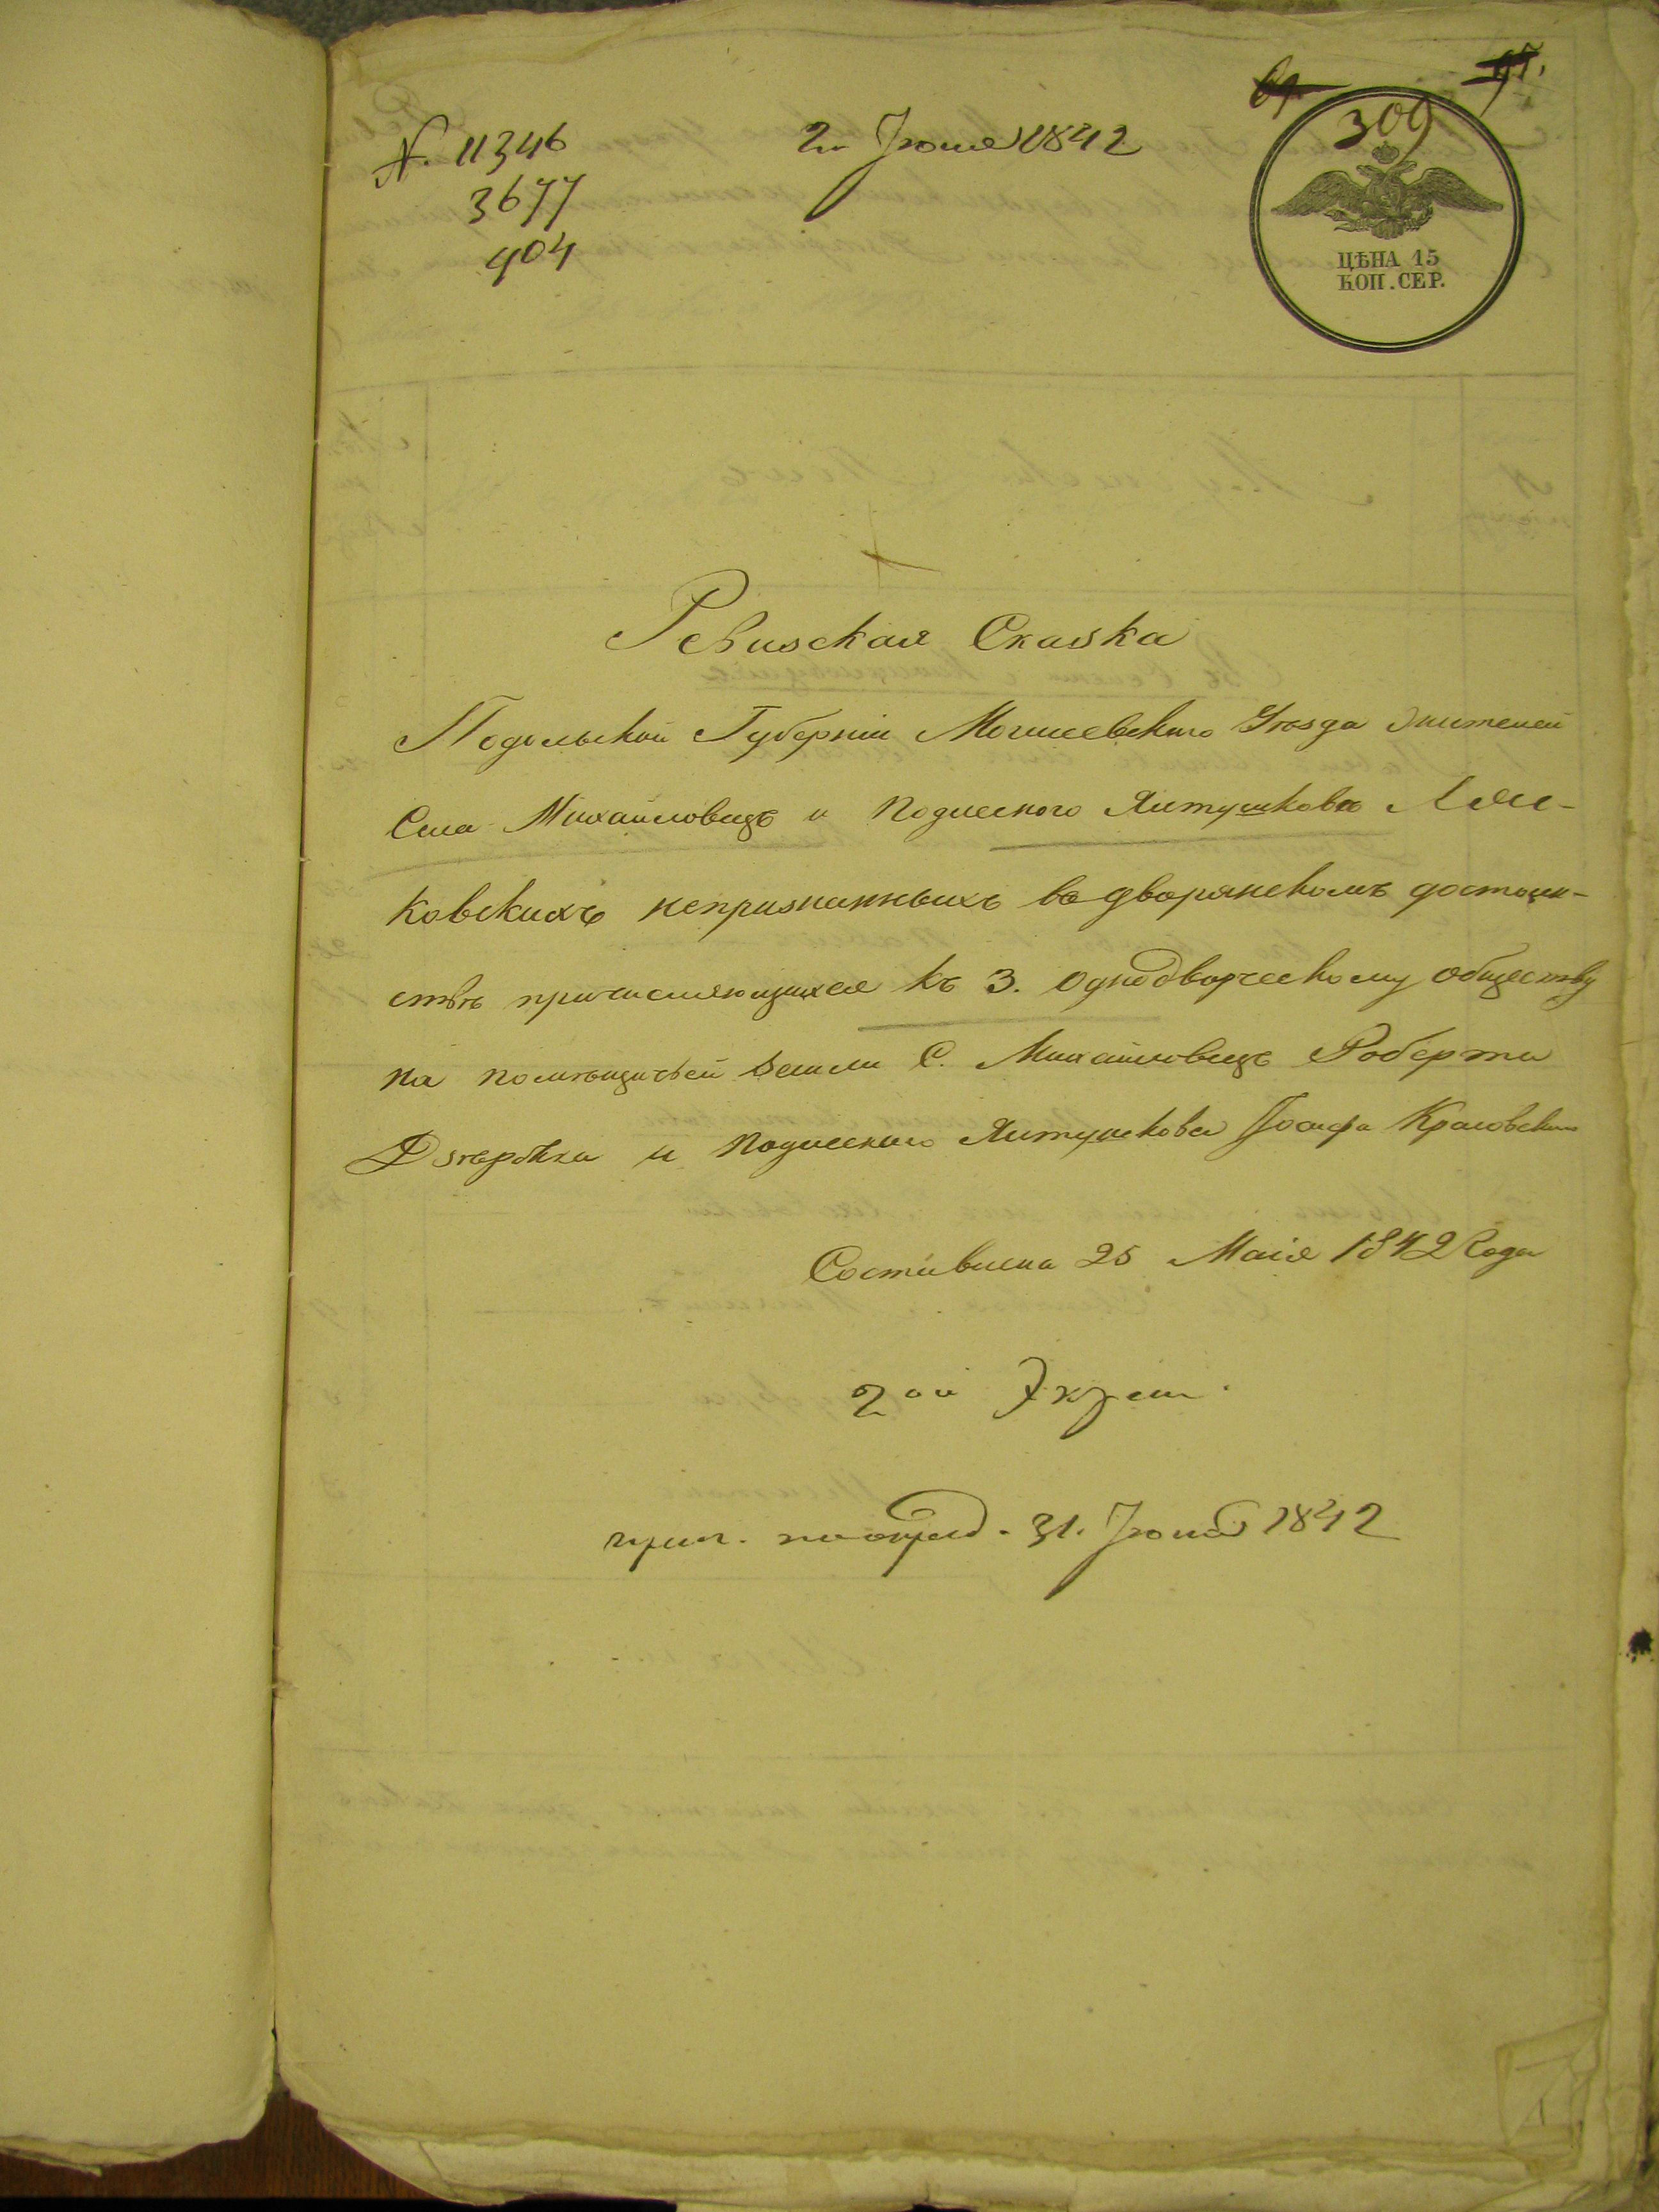 № 11346
3677
904
2 Іюня 1842
309
ЦѢНА 15
КОП. СЕР.
Ревизская Сказка
Подольской Губерніи Могилевскаго Уѣзда Жителей
Села Михайловецъ и Подлеснаго Ялтушкова Ляс-
ковскихъ непризнанныхъ въ дворянскомъ достоин-
ствѣ причисляющихся къ 3. однодворческому обществу
на помѣщичьей земли С. Михайловецъ Роберта
и Подлеснаго Ялтушкова Іосифа
Составлена 25 Маія 1842 Года
2ой Экзем.
31. 1842